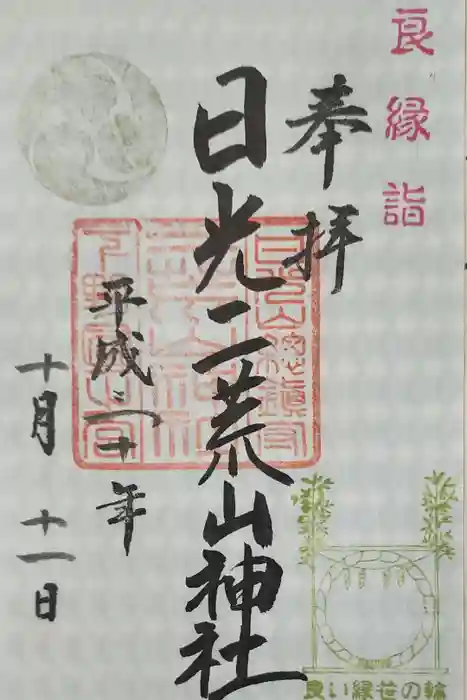 良縁詣
奉拝
日光山總鎮守
日光二荒山神社
平成三十年
十月十一日
良い縁笹の輪